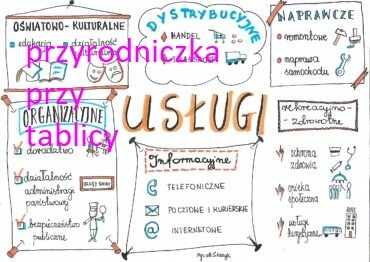 OŚWIATOWO-KULTURALNE
edukacja
działalność
DYSTRYBUCYJNE
HANDEL
TRANSPORT
NAPRAWCZE
remontowe
naprawa
samochodu
przyrodniczka
przy
tablicy
ORGANIZACYJNE
doradztwo
działalność
administracji
państwowej
URZĄD GMINY
bezpieczeństwo
publiczne
USŁUGI
Informacyjne
TELEFONICZNE
POCZTOWE I KURIERSKIE
INTERNETOWE
rekreacyjno-
zdrowotne
ochrona
zdrowia
opieka
społeczna
usługi
turystyczne